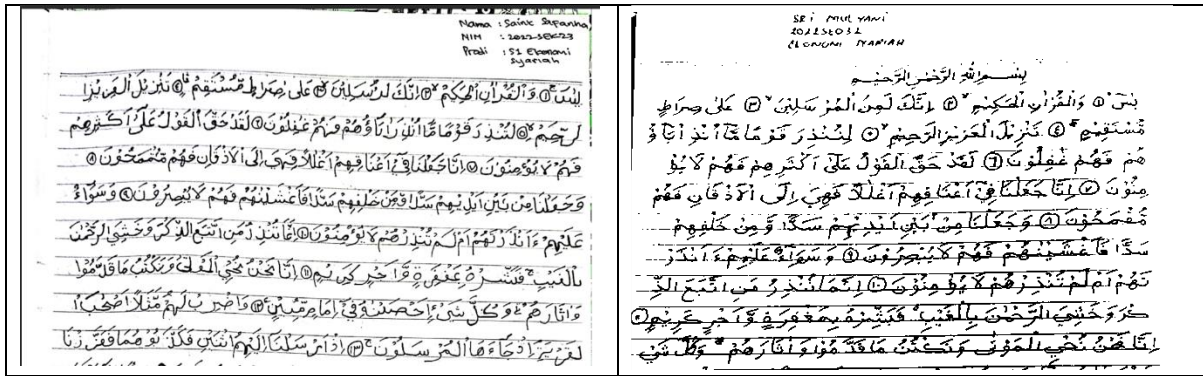 Nama : Saint Supanha
NIM : 2022SEK23
Prodi : S1 Ekonomi
Syariah
وَالْقُرْاٰنِ الْحَكِيْمِ ② اِنَّكَ لَمِنَ الْمُرْسَلِيْنَ ③ عَلٰى صِرَاطٍ مُّسْتَقِيْمٍ ④ تَنْزِيْلَ الْعَزِيْزِ
الرَّحِيْمِ ⑤ لِتُنْذِرَ قَوْمًا مَّآ اُنْذِرَ اٰبَاۤؤُهُمْ فَهُمْ غٰفِلُوْنَ ⑥ لَقَدْ حَقَّ الْقَوْلُ عَلٰٓى اَكْثَرِهِمْ
فَهُمْ لَا يُؤْمِنُوْنَ ⑦ اِنَّا جَعَلْنَا فِيْٓ اَعْنَاقِهِمْ اَغْلٰلًا فَهِيَ اِلَى الْاَذْقَانِ فَهُمْ مُّقْمَحُوْنَ ⑧
وَجَعَلْنَا مِنْۢ بَيْنِ اَيْدِيْهِمْ سَدًّا وَّمِنْ خَلْفِهِمْ سَدًّا فَاَغْشَيْنٰهُمْ فَهُمْ لَا يُبْصِرُوْنَ ⑨ وَسَوَاۤءٌ
عَلَيْهِمْ ءَاَنْذَرْتَهُمْ اَمْ لَمْ تُنْذِرْهُمْ لَا يُؤْمِنُوْنَ ⑩ اِنَّمَا تُنْذِرُ مَنِ اتَّبَعَ الذِّكْرَ وَخَشِيَ الرَّحْمٰنَ
بِالْغَيْبِ فَبَشِّرْهُ بِمَغْفِرَةٍ وَّاَجْرٍ كَرِيْمٍ ⑪ اِنَّا نَحْنُ نُحْيِ الْمَوْتٰى وَنَكْتُبُ مَا قَدَّمُوْا
وَاٰثَارَهُمْ وَكُلَّ شَيْءٍ اَحْصَيْنٰهُ فِيْٓ اِمَامٍ مُّبِيْنٍ ⑫ وَاضْرِبْ لَهُمْ مَّثَلًا اَصْحٰبَ
الْقَرْيَةِ اِذْ جَاۤءَهَا الْمُرْسَلُوْنَ ⑬ اِذْ اَرْسَلْنَآ اِلَيْهِمُ اثْنَيْنِ فَكَذَّبُوْهُمَا فَعَزَّزْنَا
SRI MULYANI
2022SE031
EKONOMI SYARIAH
بِسْمِ اللّٰهِ الرَّحْمٰنِ الرَّحِيْمِ
يٰسٓ ① وَالْقُرْاٰنِ الْحَكِيْمِ ② اِنَّكَ لَمِنَ الْمُرْسَلِيْنَ ③ عَلٰى صِرَاطٍ
مُّسْتَقِيْمٍ ④ تَنْزِيْلَ الْعَزِيْزِ الرَّحِيْمِ ⑤ لِتُنْذِرَ قَوْمًا مَّآ اُنْذِرَ اٰبَاۤؤُ
هُمْ فَهُمْ غٰفِلُوْنَ ⑥ لَقَدْ حَقَّ الْقَوْلُ عَلٰٓى اَكْثَرِهِمْ فَهُمْ لَا يُؤْ
مِنُوْنَ ⑦ اِنَّا جَعَلْنَا فِيْٓ اَعْنَاقِهِمْ اَغْلٰلًا فَهِيَ اِلَى الْاَذْقَانِ فَهُمْ
مُّقْمَحُوْنَ ⑧ وَجَعَلْنَا مِنْۢ بَيْنِ اَيْدِيْهِمْ سَدًّا وَّمِنْ خَلْفِهِمْ
سَدًّا فَاَغْشَيْنٰهُمْ فَهُمْ لَا يُبْصِرُوْنَ ⑨ وَسَوَاۤءٌ عَلَيْهِمْ ءَاَنْذَرْ
تَهُمْ اَمْ لَمْ تُنْذِرْهُمْ لَا يُؤْمِنُوْنَ ⑩ اِنَّمَا تُنْذِرُ مَنِ اتَّبَعَ الذِّ
كْرَ وَخَشِيَ الرَّحْمٰنَ بِالْغَيْبِ فَبَشِّرْهُ بِمَغْفِرَةٍ وَّاَجْرٍ كَرِيْمٍ
اِنَّا نَحْنُ نُحْيِ الْمَوْتٰى وَنَكْتُبُ مَا قَدَّمُوْا وَاٰثَارَهُمْ وَكُلَّ شَيْ